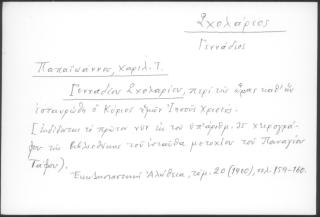 Σχολάριος
Γεννάδιος
Παπαϊωάννου, Χαριλ. Ι.
Γενναδίου Σχολαρίου, περὶ τῆς ὥρας καθ' ἣν
ἐσταυρώθη ὁ Κύριος ἡμῶν Ἰησοῦς Χριστός.
[ἐκδίδεται τὸ πρῶτον νῦν ἐκ τοῦ ὑπ' ἀριθμ. χειρογρά-
φου τῆς Βιβλιοθήκης τοῦ ἐνταῦθα μετοχίου τοῦ Παναγίου
Τάφου).
Ἐκκλησιαστικὴ Ἀλήθεια, τόμ. 20 (1900), σελ. 159-160.